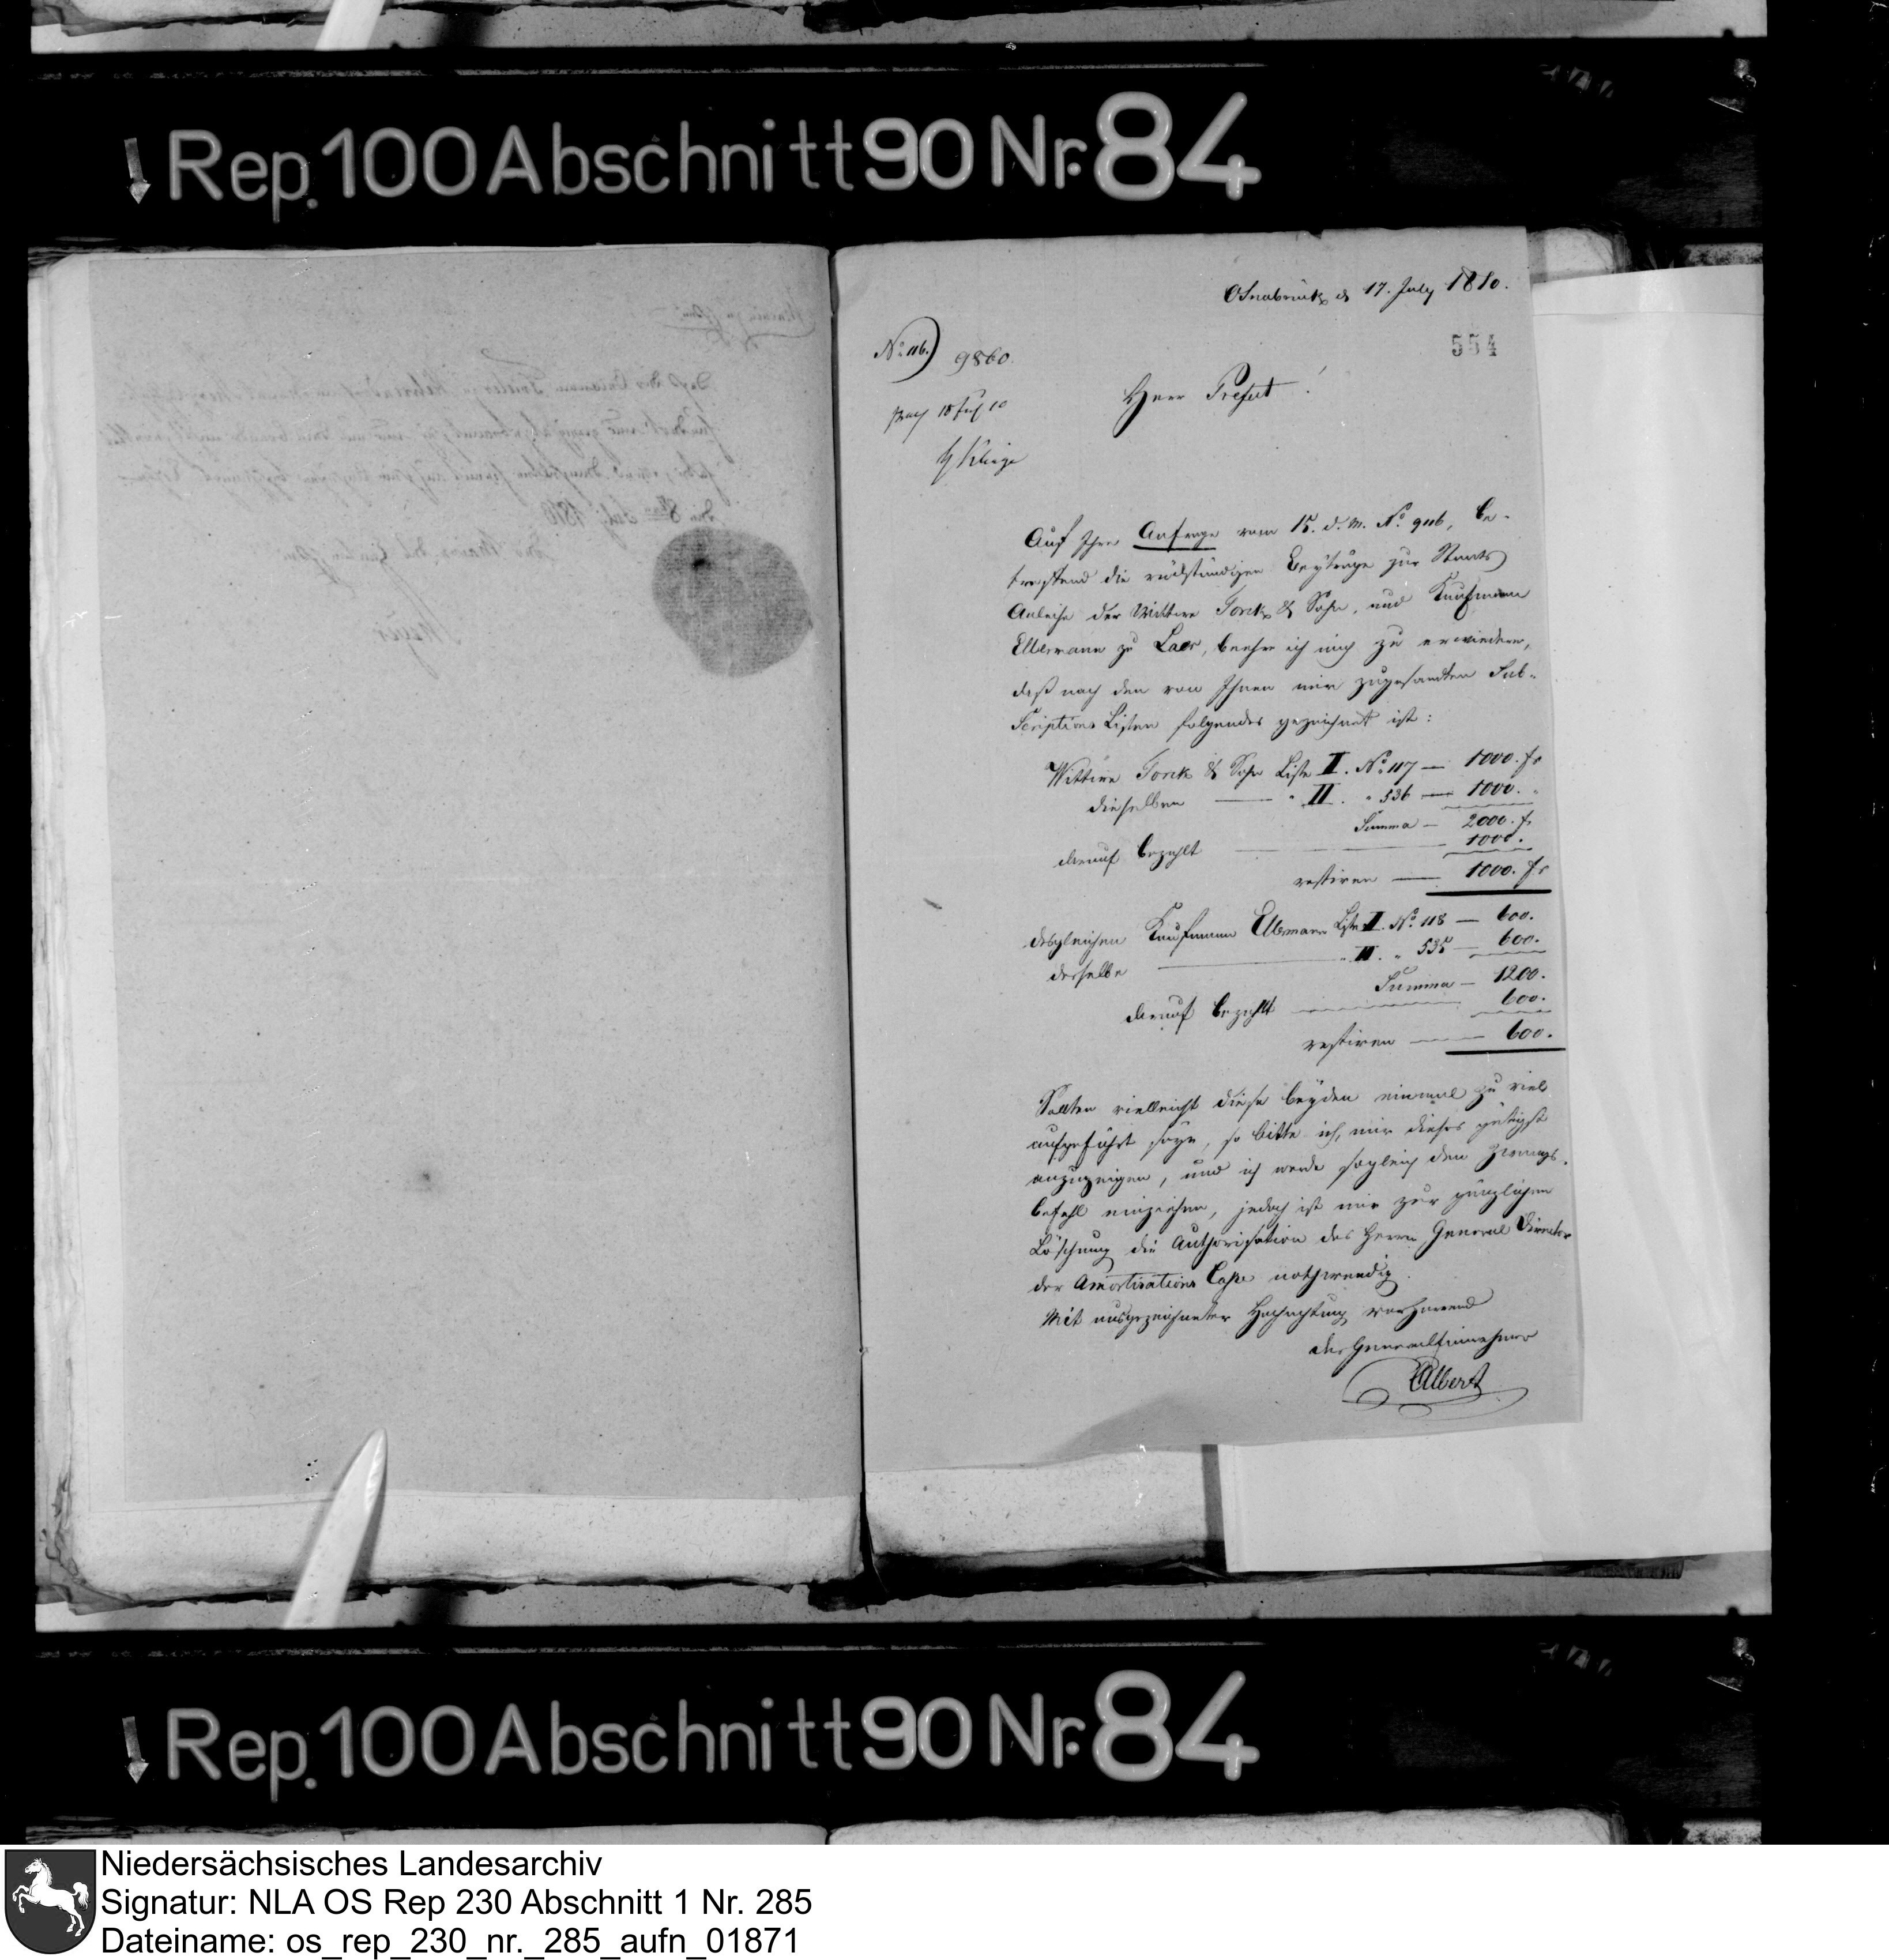 Rep. 100 Abschnitt 90 Nr. 84
Osnabrück d 17. July 1810.
554
No. 116.) 9860.
Herr Prefect!
Auf Ihre Anfrage vom 15. d. M. No. 9116, be-
treffend die rückständigen Beyträge zur Staats
Anleihe der Wittwe Tonck & Sohn, und Kaufmann
Ellermann zu Laer, beehre ich mich zu erwiedern,
daß nach den von Ihnen mir zugesandten Sub-
scriptions Listen folgendes gezeichnet ist:
Wittwe Tonck & Sohn Liste II. No. 117 — 1000. fr
dieselben — " II. " 536 — 1000. "
Summa — 2000. fr
darauf bezahlt — 1000.
restiren — 1000. fr
desgleichen Kaufmann Ellermann Liste II. No. 118 — 600.
derselbe — " II. " 535 — 600.
Summa — 1200.
darauf bezahlt — 600.
restiren — 600.
Sollten vielleicht diese beyden einmal zu viel
aufgeführt seyn, so bitte ich, mir dieses gütigst
anzuzeigen, und ich werde sogleich den Zwangs-
befehl einziehen, jedoch ist mir zur gänzlichen
Löschung die Authorisation des Herrn General Director
der Amortisations Casse nothwendig.
Mit ausgezeichneter Hochachtung verharrend
der Generaleinnehmer
Albert
Rep. 100 Abschnitt 90 Nr. 84
Niedersächsisches Landesarchiv
Signatur: NLA OS Rep 230 Abschnitt 1 Nr. 285
Dateiname: os_rep_230_nr._285_aufn_01871